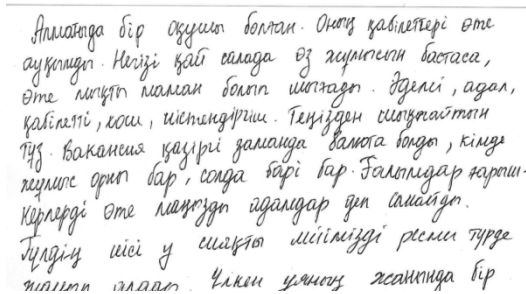 Алматыда бір оқушы болған. Оның қабілеттері өте
ауқымды. Негізі қай салада өз жұмысын бастаса,
өте мықты маман болып шығады. Әделі, адал,
қабілетті, хош, иістендіргіш. Теңізден шықпайтын
тұз. Вакансия қазіргі заманда валюта болды, кімде
жұмыс орны бар, солда бәрі бар. Ғалымдар ғарыш-
керлерді өте маңызды адамдар деп санайды.
Гүлдің иісі у сияқты миімізді ресми түрде
жаулап алады. Үлкен ұяның жанында бір